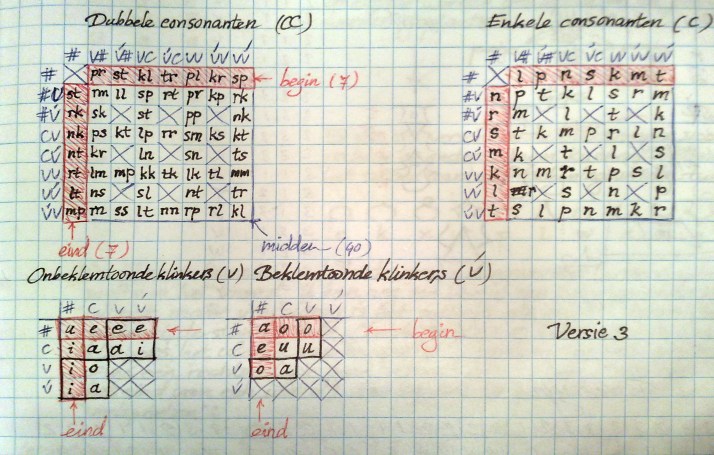 Dubbele consonanten (CC) Enkele consonanten (C)
# V# V́# VC V́C VV V́V VV́
# pr st kl tr pl kr sp begin (7)
#V st rm ll sp rt pr kp rk
#V́ rk sk st pp nk
CV nk ps kt lp rr sm ks kt
CV́ nt kr ln sn ts
VV rt lm mp kk tk lk tl mm
VV́ lt ns sl nt tr
V́V mp rn ss lt nn rp rl kl
eind (7) midden (40)
V# V́# VC V́C VV V́V VV́
# l p n s k m t
#V n p t k l s r m
#V́ r m l t k
CV s t k m p r l n
CV́ m k t l s
VV k n m r t p s l
VV́ l r s n p
V́V t s l p n m k r
Onbeklemtoonde klinkers (V) Beklemtoonde klinkers (V́)
# C V V́
# u e e e
C i a a i
V i o
V́ i a
eind
# C V V́
# a o o begin
C e u u
V o a
V́
eind
Versie 3